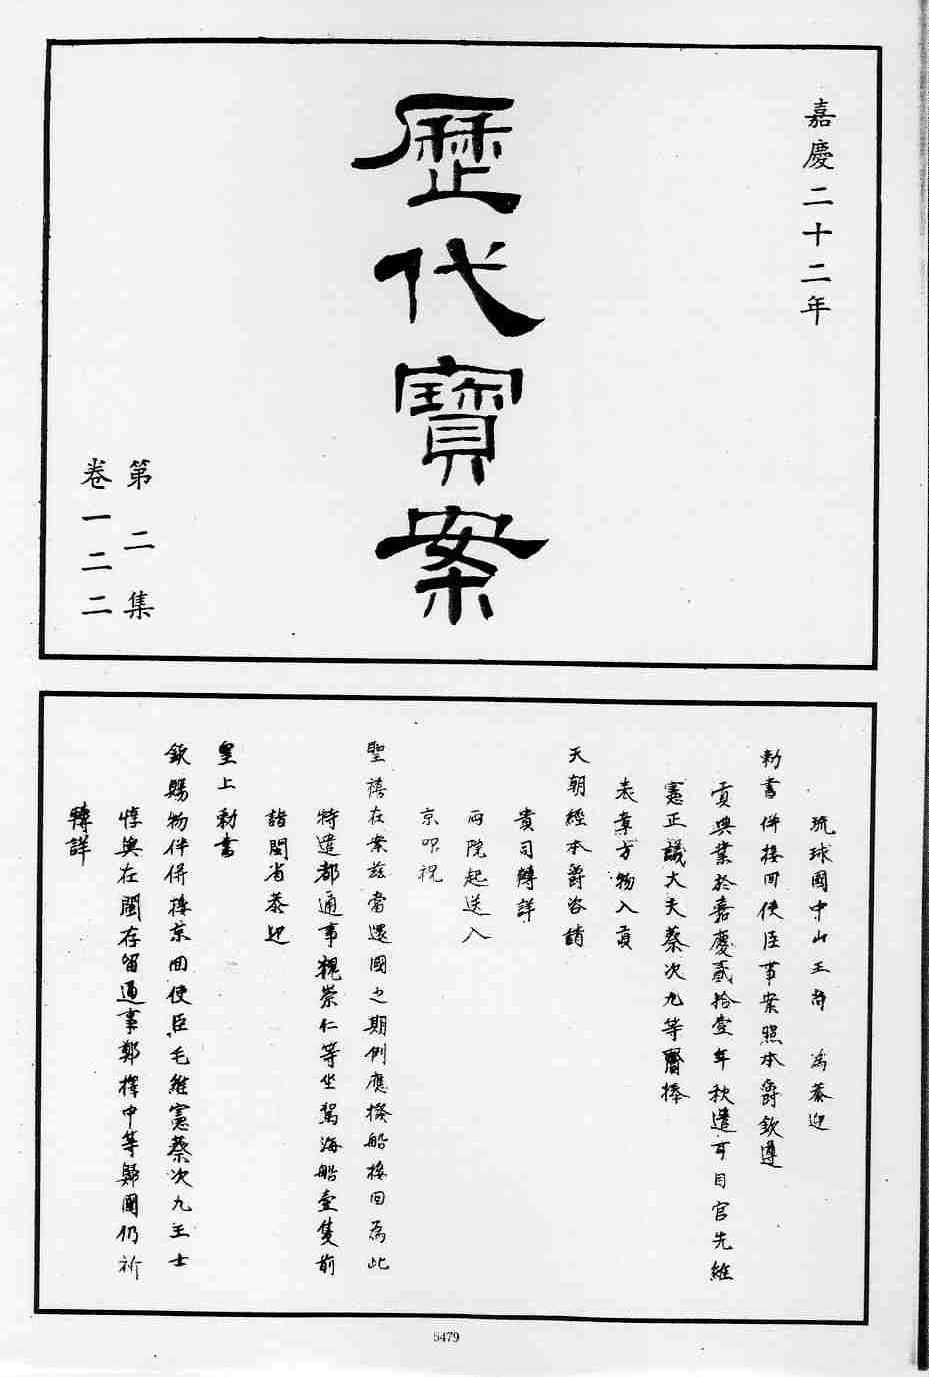 嘉慶二十二年
歷代寶案
第二集
卷一二二
琉球國中山王尚 為恭迎
勅書併接回使臣事案照本爵欽遵
貢典業於嘉慶貳拾壹年秋遣耳目官毛維
憲正議大夫蔡次九等齎捧
表章方物入貢
天朝經本爵咨請
貴司轉詳
両院起送入
京叩祝
聖禧在案茲當還國之期例應撥船接回為此
特遣都通事魏崇仁等坐駕海船壹隻前
詣閩省恭迎
皇上勅書
欽賜物件併接京回使臣毛維憲蔡次九王士
惇與在閩存留通事鄭擇中等歸國仍祈
轉詳
5479